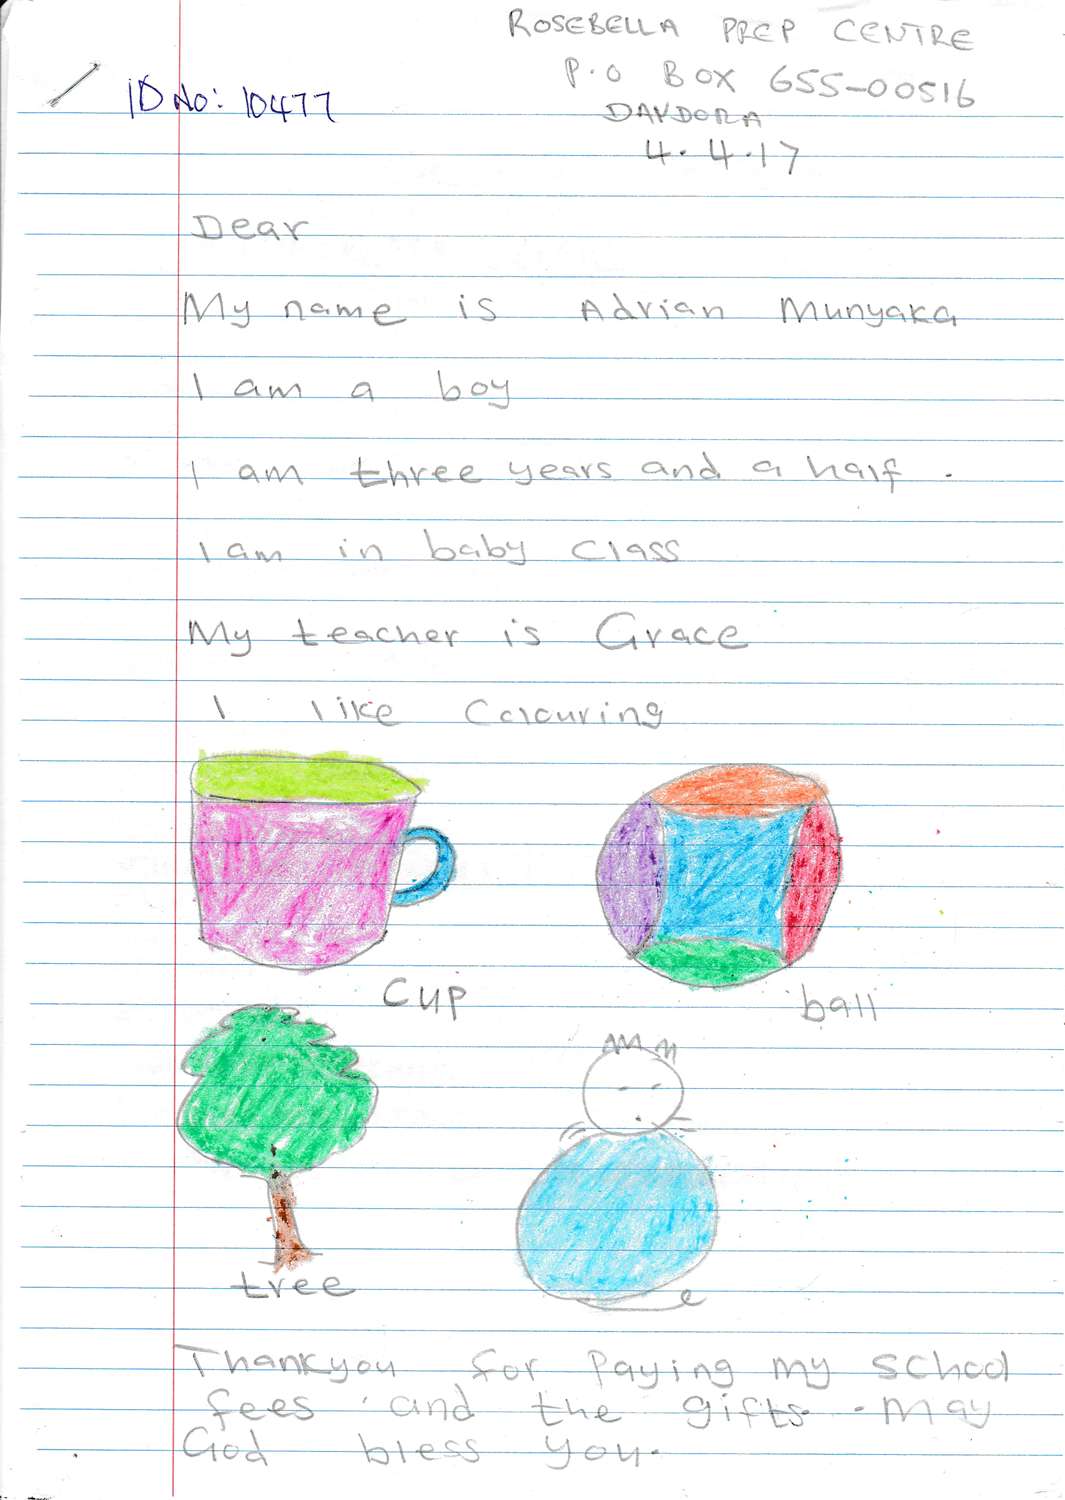 ROSEBELLA PREP CENTRE
P.O BOX 655-00516
DANDORA
4.4.17
ID No: 10477
Dear
My name is Adrian Munyaka
I am a boy
I am three years and a half .
I am in baby class
My teacher is Grace
I like Colouring
cup
ball
tree
Thankyou for paying my school
fees and the gifts. May
God bless you.